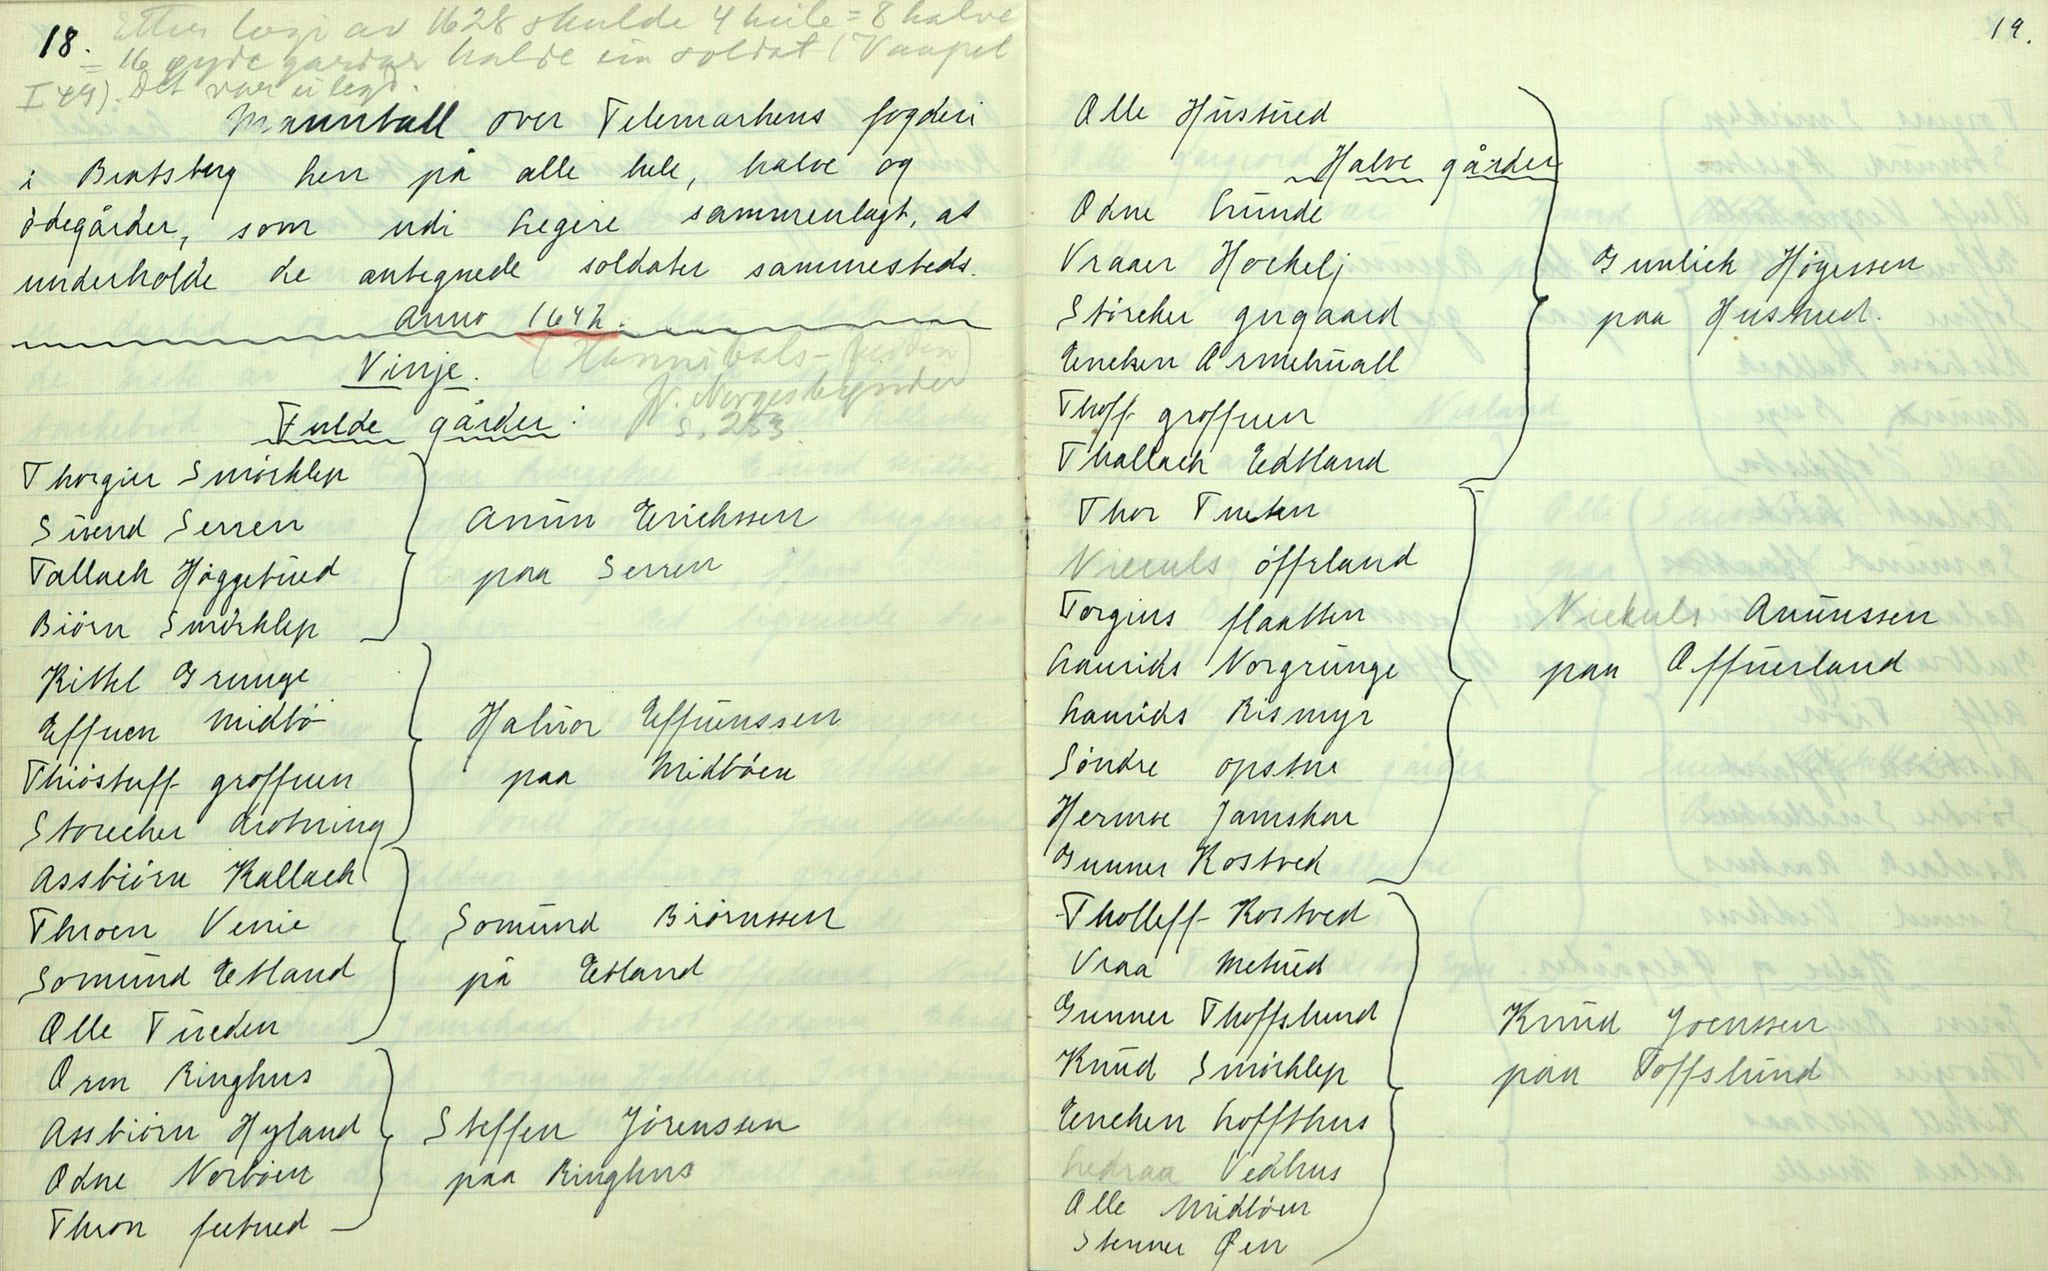 18. Etter logi av 1628 skulde 4 heile = 8 halve
= 16 øyde gardar halde ein soldat (Vaapel
I 49). Det var ei legd.
Manntall over Telemarkens fogderi
i Bratsberg len på alle hele, halve og
ödegårder, som udi legere sammenlagt, at
underholde de antegnede soldater sammesteds.
Anno 1642.
Vinje. (Hannibals-feiden)
Fulde gårder: N. Norges bygder
s. 253
Thorgier Smörklep
Süend Serren
Tallach Höggetüed
Biörn Smörklep
Anün Erichssen
paa Serren
Kittel Grunge
Effuen Midbö
Thiöstuff groffuen
Storcher drotning
Haluor Effuenssen
paa Midböen
Assbiörn Kallach
Throen Venie
Somünd Edland
Olle Tüeden
Somünd Biörnssen
på Edland
Orm Ringhus
Assbiörn Hyland
Odne Norböen
Thron feetued
Steffen Jörenssen
paa Ringhus
19.
Olle Hüstüed
Halve gårder
Odne Lünde
Vraaer Hoekelj
Störcher gugaard
Encken Armehuall
Thoff groffuen
Thallach Edtland
Gunlich Högessen
paa Hustued.
Thor Tueten
Niculs öffrland
Torgius flaatten
Laurids Norgrunge
Laurids Bismyr
Söndre opstue
Hermoe Jamskar
Gunner Kostved
Niekuls Anünssen
paa Offüerland
Tholleff Kostved
Vraa Metüed
Gunner Thoffslund
Knüd Smörklep
Encken Loffthus
Ledraa Vedhus
Olle Midböen
Stenner Öen
Knüd Joenssen
paa Toffslünd